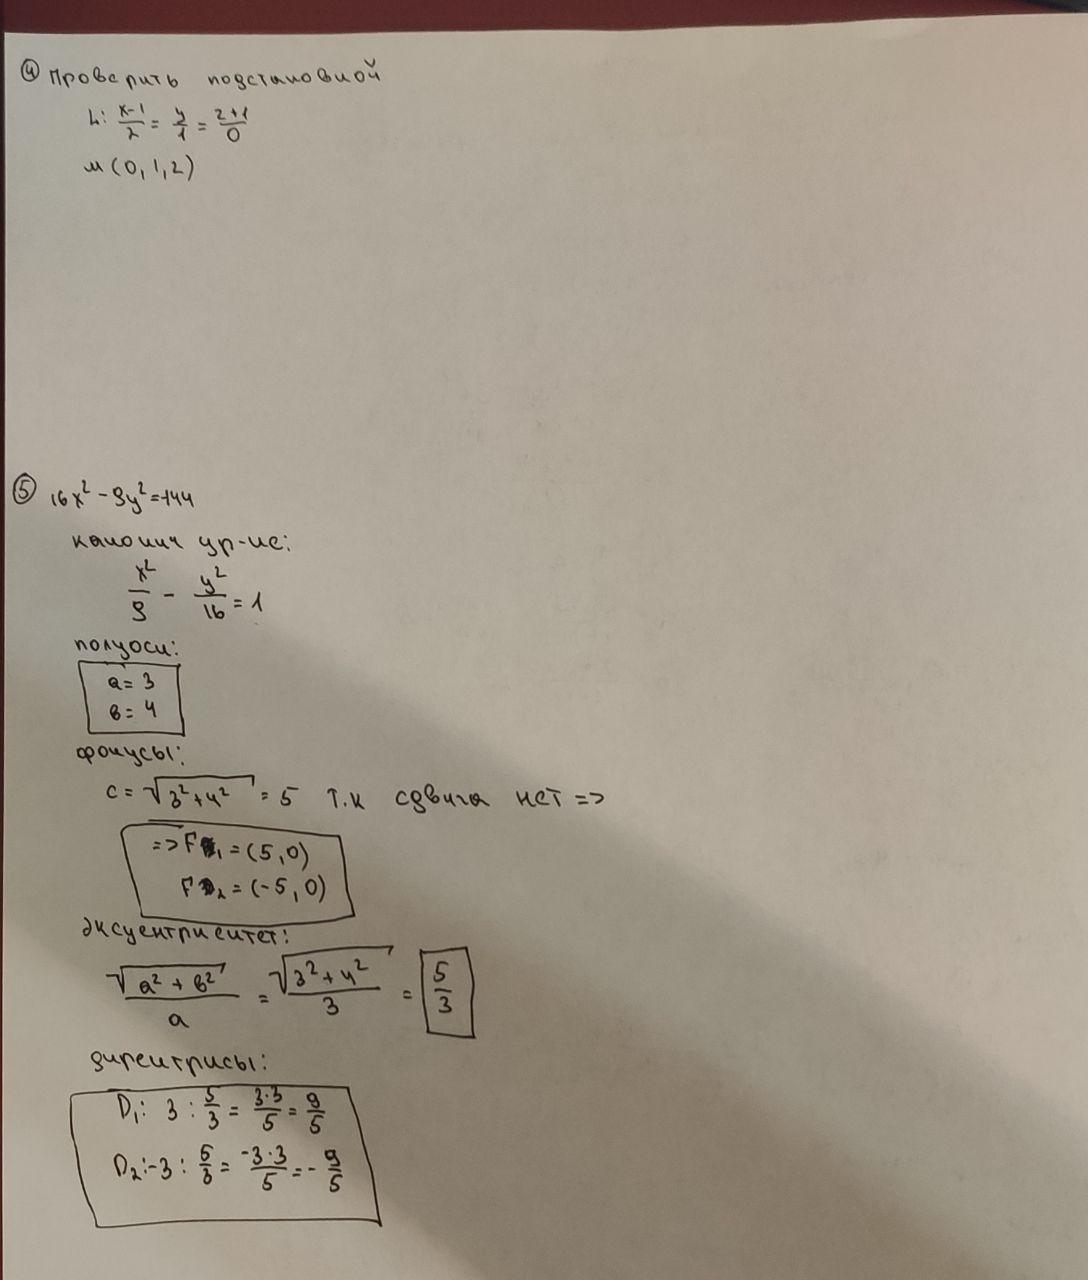 ④ Проверить подстановкой
L: x-1/2 = y/1 = z+1/0
M (0, 1, 2)
⑤ 16x² - 9y² = 144
канонич ур-ие:
x²/9 - y²/16 = 1
полуоси:
a = 3
b = 4
фокусы:
c = √(3² + 4²) = 5 т.к сдвига нет =>
=> F₁ = (5, 0)
F₂ = (-5, 0)
эксцентриситет:
√(a² + b²)/a = √(3² + 4²)/3 = 5/3
директрисы:
D₁: 3 : 5/3 = 3·3/5 = 9/5
D₂: -3 : 5/3 = -3·3/5 = -9/5